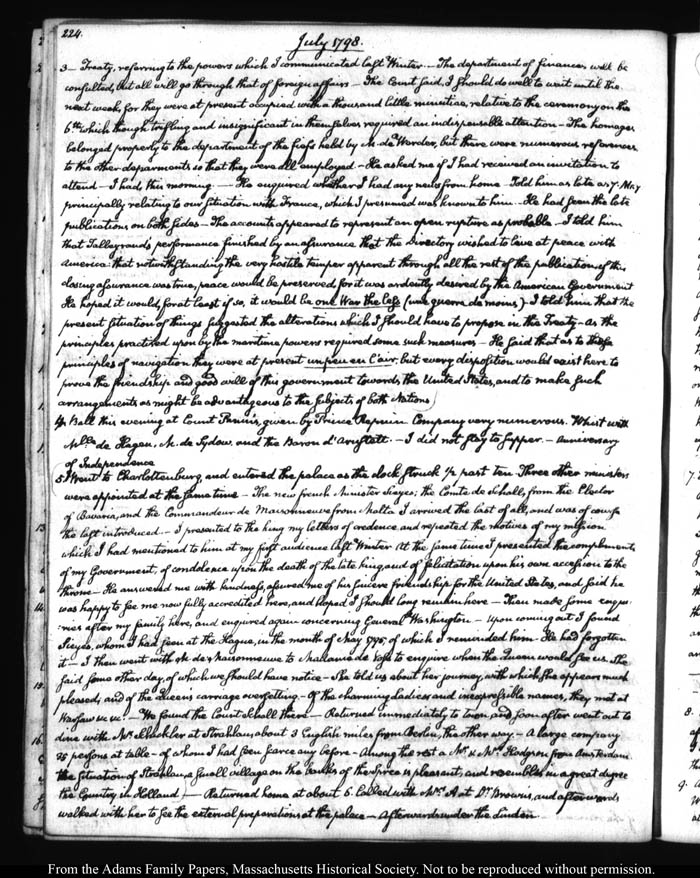 224.
July 1798.
3— Treaty, referring to the powers which I communicated last Winter.— The department of finances will be
consulted, but all will go through that of foreign affairs— The Count said, I should do well to wait until the
next week, for they were at present occupied with a thousand little minutiae, relative to the ceremony on the
6th which though trifling and insignificant in themselves required an indispensable attention— The homages
belonged properly to the department of the fiefs held by M. de Werder, but there were numerous references
to the other departments so that they were all employed— He asked me if I had received an invitation to
attend— I had, this morning.— He enquired whether I had any news from home— Told him as late as 7. May
principally relating to our situation with France, which I presumed was known to him— He had seen the late
publications on both sides— The accounts appeared to represent an open rupture as probable— I told him
that Talleyrand's performance finished by an assurance that the Directory wished to live at peace with
America: that notwithstanding the very hostile temper apparent through all the rest of the publication if this
closing assurance was true, peace would be preserved, for it was ardently desired by the American Government
He hoped it would, for at least if so, it would be one War the less (une guerre de moins)— I told him that the
present situation of things suggested the alterations which I should have to propose in the Treaty— as the
principles practised upon by the maritime powers required some such measures— He said that as to these
principles of navigation they were at present un peu en l'air, but every disposition would exist here to
prove the friendship and good will of this government towards the United States, and to make such
arrangements as might be advantageous to the subjects of both Nations
4. Ball this evening at Count Panin's, given by Prince Repnin Company very numerous. Whist with
Mlle de Hagen, M. de Sydow, and the Baron d'Arnstatt.— I did not stay to supper.— Anniversary
of Independence
5. Went to Charlottenburg, and entered the palace as the clock struck 1/2 past ten. Three other ministers
were appointed at the same time— The new french Minister Sieyes; the Comte de Schall, from the Elector
of Bavaria, and the Commandeur de Maisonneuve from Malta I arrived the last of all, and was of course
the last introduced.— I presented to the king my letters of credence, and repeated the motives of my mission
which I had mentioned to him at my first audience last Winter At the same time I presented the compliments
of my Government, of condolence upon the death of the late king, and of felicitation upon his own accession to the
throne— He answered me with kindness, assured me of his sincere friendship for the United States, and said he
was happy to see me now fully accredited here, and hoped I should long remain here— Then made some enqui-
ries after my family here, and enquired again concerning General Washington— Upon coming out I found
Sieyes, whom I had seen at the Hague, in the month of May 1795, of which I reminded him— He had forgotten
it— I then went with M. de Maisonneuve to Madame de Voss to enquire when the Queen would see us. She
said some other day, of which we should have notice— She told us about her journey, with which she appears much
pleased, and of the Queen's carriage oversetting— Of the charming ladies and inexpressible names, they met at
Warsaw &c &c.— We found the Count Schall there— Returned immediately to town, and soon after went out to
dine with Mr. Schickler at Strahlau, about 3 English miles from Berlin, the other way.— A large company
25 persons at table— of whom I had seen scarce any before— Among the rest a Mr. & Mrs. Hodgson from Amsterdam
The situation of Strahlau, a small village on the banks of the Spree is pleasant, and resembles in a great degree
the Country in Holland.— Returned home at about 6. Called with Mrs. A at Dr. Brown's, and afterwards
walked with her to see the external preparations at the palace— Afterwards under the Linden
From the Adams Family Papers, Massachusetts Historical Society. Not to be reproduced without permission.